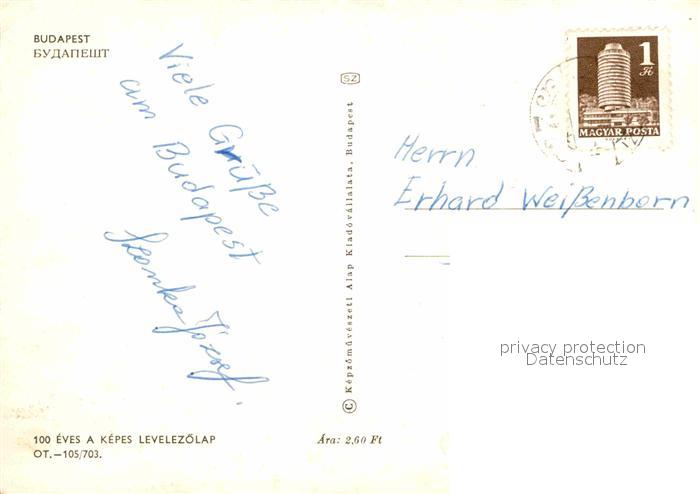 BUDAPEST
БУДАПЕШТ
Viele Grüße
am Budapest
József.
SZ
© Képzőművészeti Alap Kiadóvállalata, Budapest
1
Ft
MAGYAR POSTA
Herrn
Erhard Weißenborn
privacy protection
Datenschutz
100 ÉVES A KÉPES LEVELEZŐLAP
OT.—105/703.
Ára: 2,60 Ft